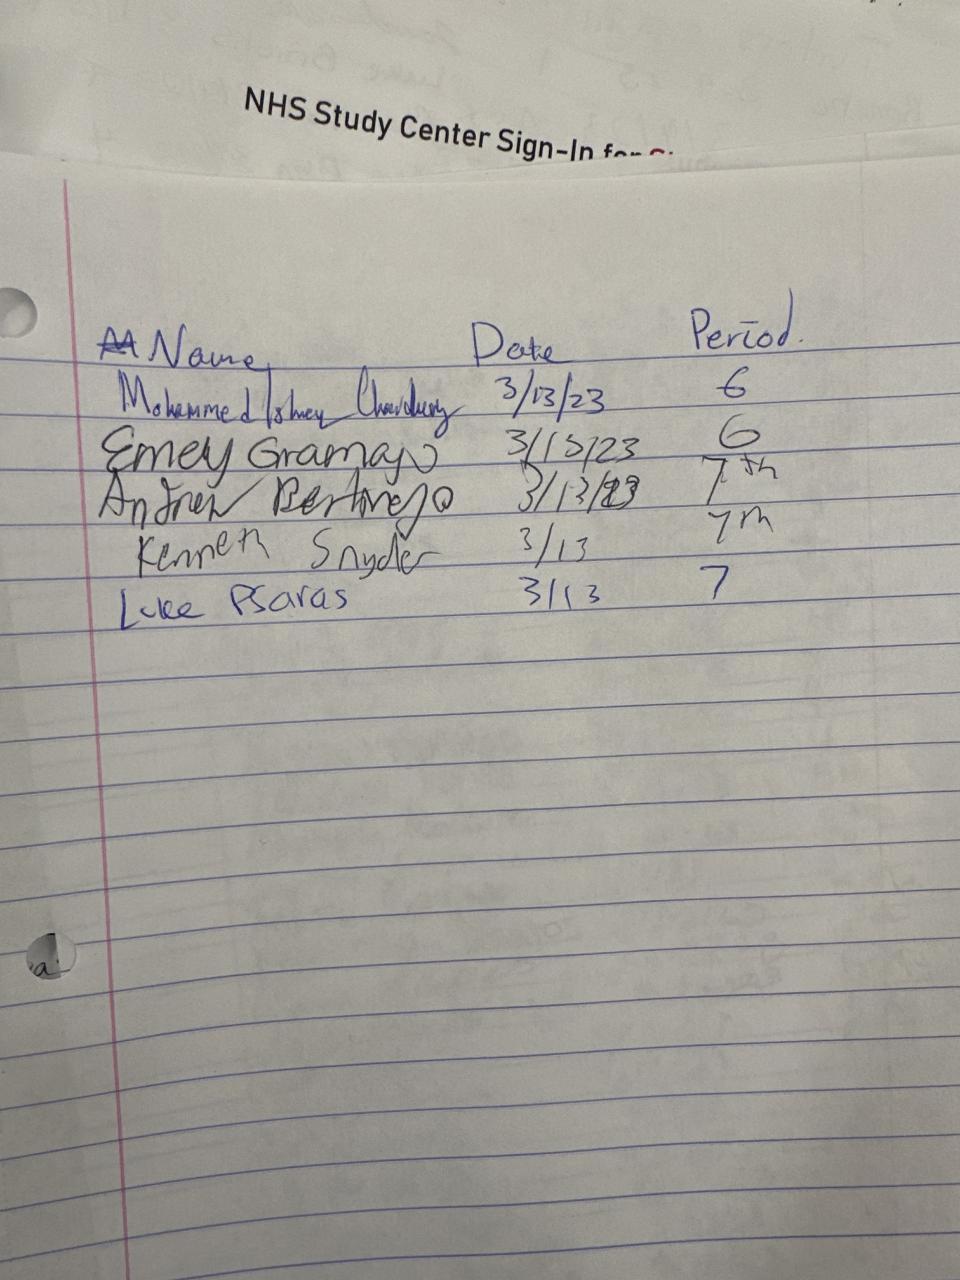 NHS Study Center Sign-In for
Name Date Period.
Mohammed Chowdury 3/13/23 6
Emely Gramajo 3/13/23 6
Andrew 3/13/23 7th
Kenneth Snyder 3/13 7th
Luke Psaras 3/13 7
a